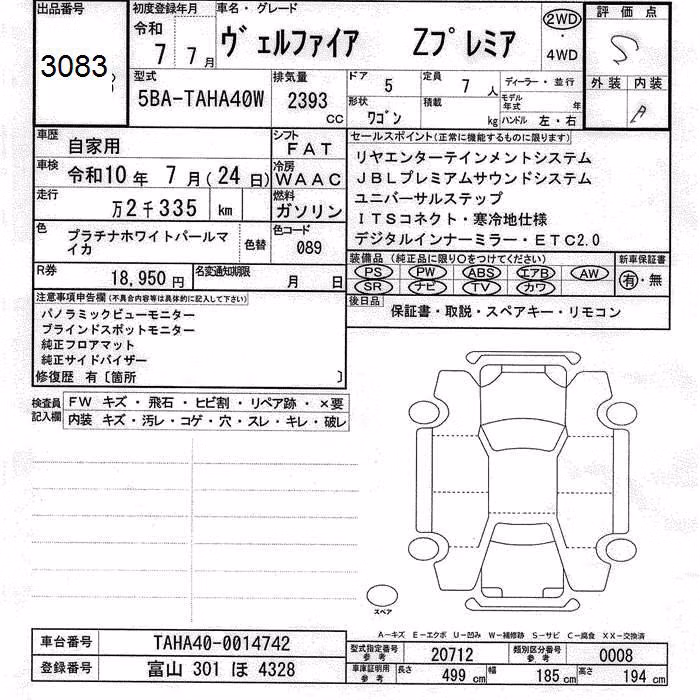 出品番号 初度登録年月 車名・グレード 評価点
3083 令和 7 7月 ヴェルファイア Zプレミア 2WD ・ 4WD S
型式 排気量 ドア 定員 ディーラー・並行 外装 内装
5BA-TAHA40W 2393 CC 5 7人 モデル年式 年 A
形状 ワゴン 積載 kg ハンドル 左・右
車歴 自家用 シフト FAT セールスポイント(正常に機能するものに限ります)
車検 令和10年 7月(24日) 冷房 WAAC リヤエンターテインメントシステム
JBLプレミアムサウンドシステム
走行 万2千335 km 燃料 ガソリン ユニバーサルステップ
ITSコネクト・寒冷地仕様
色 プラチナホワイトパールマイカ 色替 色コード 089 デジタルインナーミラー・ETC2.0
装備品(純正品に限り○をつけてください) 新車保証書
R券 18,950円 名変通知期限 月 日 PS PW ABS エアB AW 有・無
SR ナビ TV カワ
注意事項申告欄(不具合内容等は具体的に記入して下さい) 後日品 保証書・取説・スペアキー・リモコン
パノラミックビューモニター
ブラインドスポットモニター
純正フロアマット
純正サイドバイザー
修復歴 有〔箇所 〕
検査員記入欄 FW キズ・飛石・ヒビ割・リペア跡・×要
内装 キズ・汚レ・コゲ・穴・スレ・キレ・破レ
スペア
A-キズ E-エクボ U-凹み W-補修跡 S-サビ C-腐食 XX-交換済
車台番号 TAHA40-0014742 型式指定番号参考 20712 類別区分番号参考 0008
登録番号 富山 301 ほ 4328 車庫証明用参考 長さ 499cm 幅 185cm 高さ 194cm